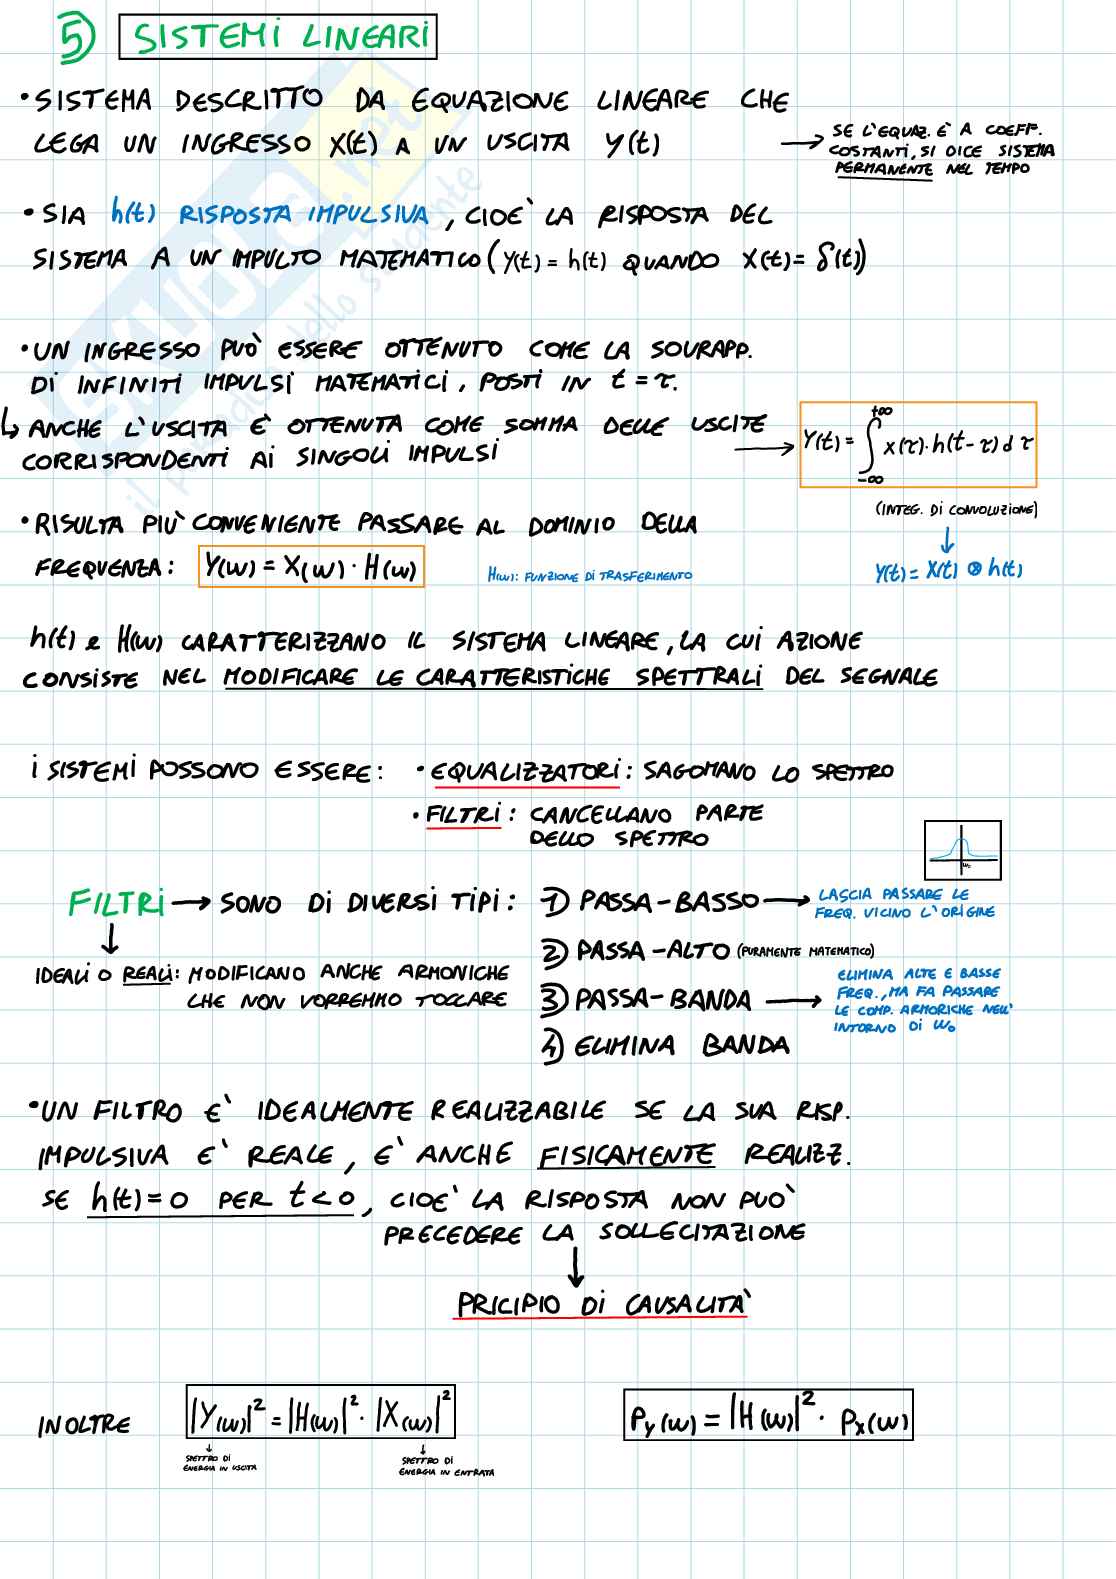 5) SISTEMI LINEARI
• SISTEMA DESCRITTO DA EQUAZIONE LINEARE CHE
LEGA UN INGRESSO X(t) A UN USCITA Y(t)
→ SE L'EQUAZ. E' A COEFF.
COSTANTI, SI DICE SISTEMA
PERMANENTE NEL TEMPO
• SIA h(t) RISPOSTA IMPULSIVA, CIOE' LA RISPOSTA DEL
SISTEMA A UN IMPULTO MATEMATICO (Y(t) = h(t) QUANDO X(t) = δ(t))
• UN INGRESSO PUÒ ESSERE OTTENUTO COME LA SOURAPP.
DI INFINITI IMPULSI MATEMATICI, POSTI IN t = τ.
↳ ANCHE L'USCITA E' OTTENUTA COME SOMMA DELLE USCITE
CORRISPONDENTI AI SINGOLI IMPULSI
→ Y(t) = ∫_{-∞}^{+∞} X(τ) · h(t - τ) d τ
(INTEG. DI CONVOLUZIONE)
↓
Y(t) = X(t) ⊗ h(t)
• RISULTA PIU' CONVENIENTE PASSARE AL DOMINIO DELLA
FREQUENZA: Y(ω) = X(ω) · H(ω)
H(ω): FUNZIONE DI TRASFERIMENTO
h(t) e H(ω) CARATTERIZZANO IL SISTEMA LINEARE, LA CUI AZIONE
CONSISTE NEL MODIFICARE LE CARATTERISTICHE SPETTRALI DEL SEGNALE
I SISTEMI POSSONO ESSERE: • EQUALIZZATORI: SAGOMANO LO SPETTRO
• FILTRI: CANCELLANO PARTE
DELLO SPETTRO
ω₀
FILTRI → SONO DI DIVERSI TIPI: 1) PASSA-BASSO → LASCIA PASSARE LE
FREQ. VICINO L'ORIGINE
↓
IDEALI O REALI: MODIFICANO ANCHE ARMONICHE
CHE NON VORREMMO TOCCARE
2) PASSA-ALTO (PURAMENTE MATEMATICO)
3) PASSA-BANDA → ELIMINA ALTE E BASSE
FREQ., MA FA PASSARE
LE COMP. ARMORICHE NELL'
INTORNO DI ω₀
4) ELIMINA BANDA
• UN FILTRO E' IDEALMENTE REALIZZABILE SE LA SUA RISP.
IMPULSIVA E' REALE, E' ANCHE FISICAMENTE REALIZZ.
SE h(t) = 0 PER t < 0, CIOE' LA RISPOSTA NON PUO'
PRECEDERE LA SOLLECITAZIONE
↓
PRICIPIO DI CAUSALITA'
INOLTRE |Y(ω)|² = |H(ω)|² · |X(ω)|²
↓ SPETTRO DI
ENERGIA IN USCITA
↓ SPETTRO DI
ENERGIA IN ENTRATA
P_Y(ω) = |H(ω)|² · P_X(ω)
SKUOLA.net
il portale dello studente